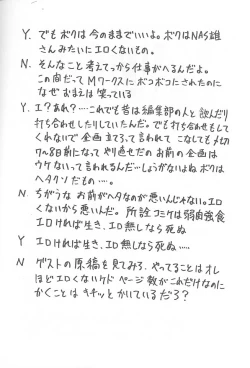 Y. でもボクは今のままでいいよ。ボクはNAS雄
さんみたいにエロくないもの。
N. そんなこと考えてっから仕事がへるんだよ。
この向だってMワークスにボコボコにされたのに
なぜおまえは笑っている
Y. エ?あれ?‥‥これでも昔は編集部の人と飲んだり
打ち合わせしたりしていたんだ。でも打ち合わせもして
くれないで企画立てろって言われてこなしても〆切
7〜8日前になってやり直せだのお前の企画は
ウケないって言われるんだ…しょうがないよねボクは
ヘタクソだもの‥‥。
N ちがうなお前がヘタなのが悪いんじゃない。エロ
くないから悪いんだ。所詮コミケは弱肉強食
エロければ生き、エロ無しなら死ぬ
Y エロければ生き、エロ無しなら死ぬ‥‥
N ゲストの原稿を見てみろ、やってることはオレ
ほどエロくないケドページ数がこれだけなのに
かくことはキチッとかいているだろ?